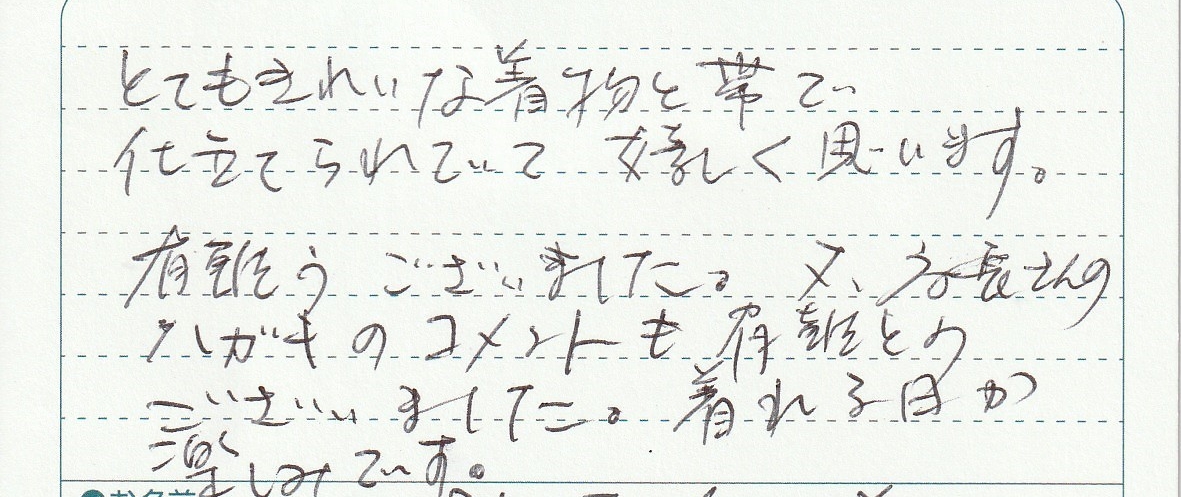 とてもきれいな着物と帯で
仕立てられていて 嬉しく思います。
有難う ございました。又、店長さんの
ハガキの コメントも 有難とう
ございました。着れる日が
楽しみです。
●お名前